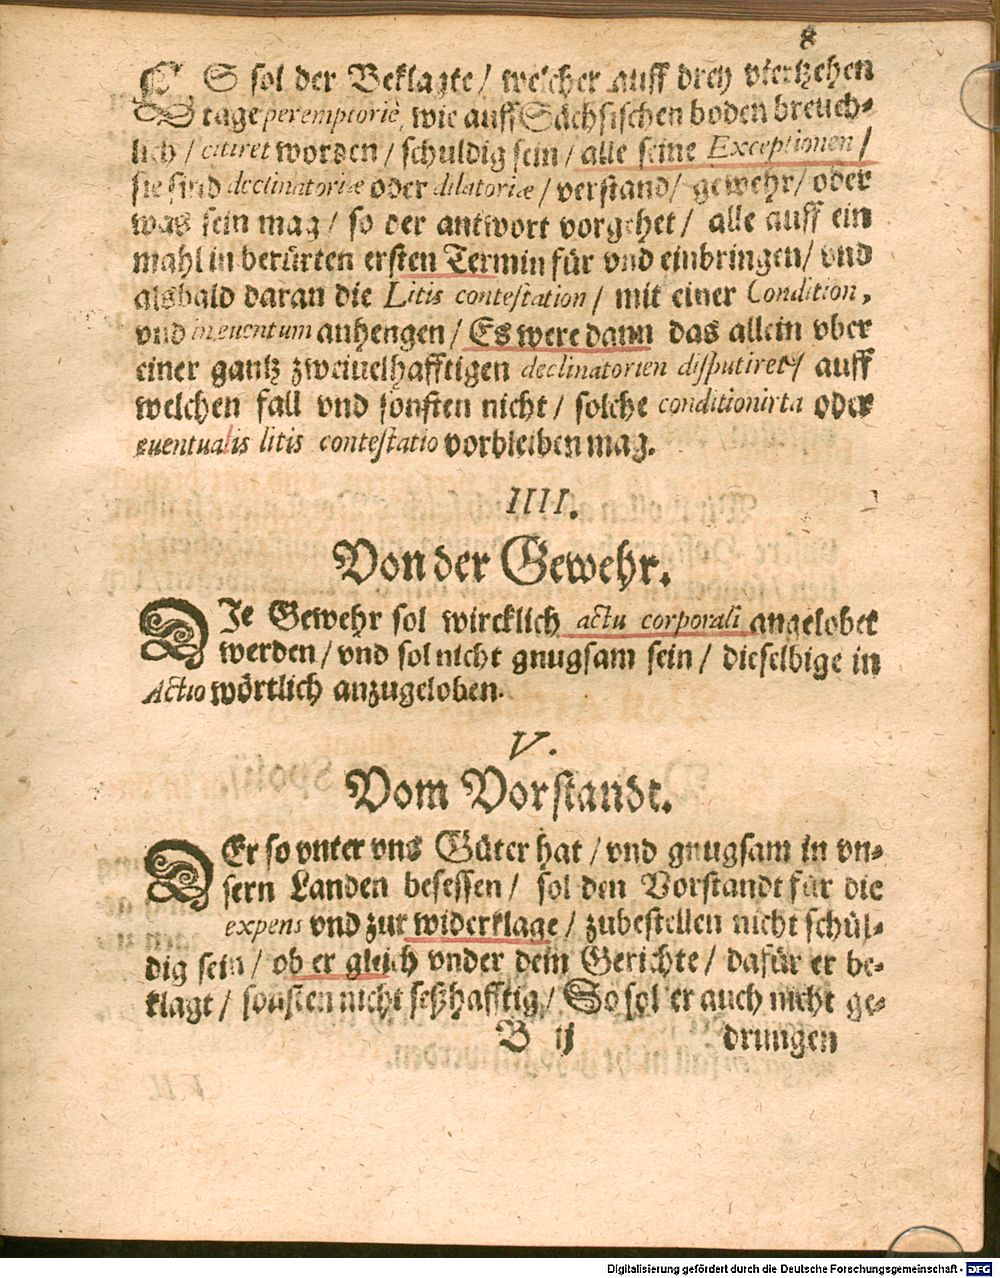 8
ES sol der Beklagte / welcher auff drey viertzehen
tage peremptoriè, wie auff Sächsischen boden breuch-
lich / citiret worden / schuldig sein / alle seine Exceptionen /
sie sind declinatoriæ oder dilatoriæ / verstand / gewehr / oder
was sein mag / so der antwort vorgehet / alle auff ein
mahl in berürten ersten Termin für vnd einbringen / vnd
alsbald daran die Litis contestation / mit einer Condition,
vnd in euentum anhengen / Es were dann das allein vber
einer gantz zweiuelhafftigen declinatorien disputiret / auff
welchen fall vnd sonsten nicht / solche conditionirta oder
euentualis litis contestatio vorbleiben mag.
IIII.
Von der Gewehr.
DIe Gewehr sol wircklich actu corporali angelobet
werden / vnd sol nicht gnugsam sein / dieselbige in
Actio wörtlich anzugeloben.
V.
Vom Vorstandt.
DEr so vnter vns Güter hat / vnd gnugsam in vn-
sern Landen besessen / sol den Vorstandt für die
expens vnd zur widerklage / zubestellen nicht schül-
dig sein / ob er gleich vnder dem Gerichte / dafür er be-
klagt / sonsten nicht seßhafftig / So sol er auch nicht ge-
B ij drungen
Digitalisierung gefördert durch die Deutsche Forschungsgemeinschaft - DFG